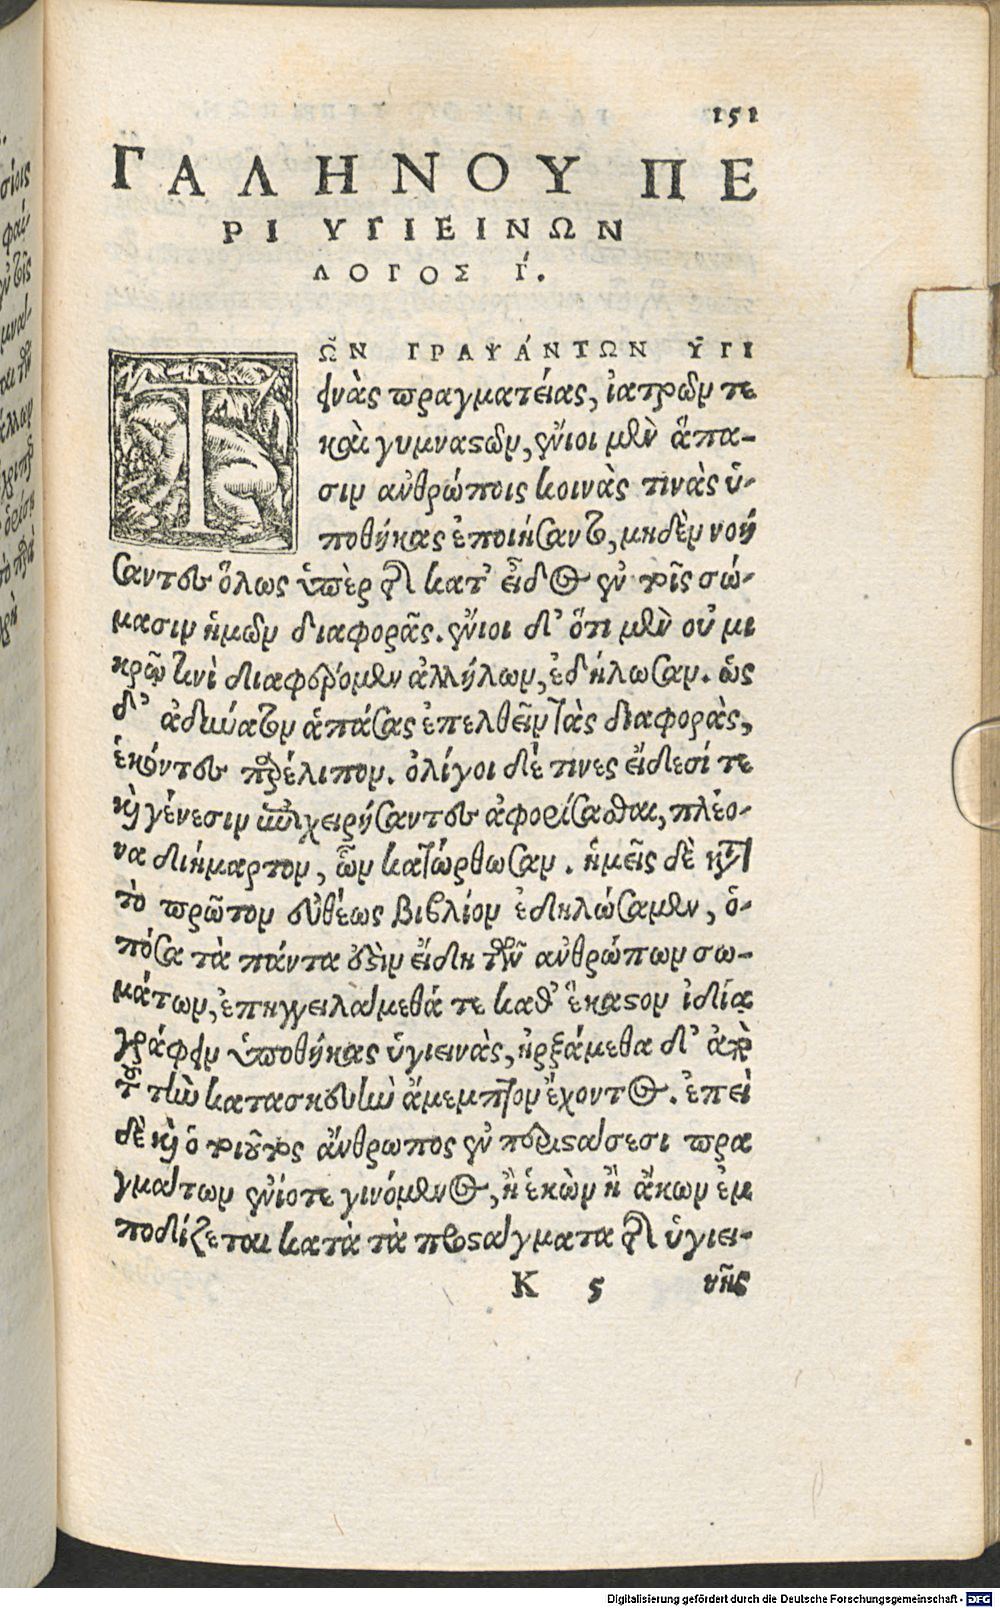 151
ΓΑΛΗΝΟΥ ΠΕ
ΡΙ ΥΓΙΕΙΝΩΝ
ΛΟΓΟΣ Γ́.
ΤΩ͂Ν ΓΡΑΨΆΝΤΩΝ ὙΓΙ
εινὰς πραγματείας, ἰατρῶν τε
καὶ γυμναστῶν, ἔνιοι μὲν ἅπα-
σιν ἀνθρώποις κοινὰς τινὰς ὑ-
ποθήκας ἐποιήσαντο, μηδὲν νοή
σαντες ὅλως ὑπὲρ τῆς κατ' εἶδος ἐν τοῖς σώ-
μασιν ἡμῶν διαφορᾶς. ἔνιοι δ' ὅτι μὲν οὐ μι
κρῷ τινὶ διαφέρομεν ἀλλήλων, ἐδήλωσαν. ὡς
δ' ἀδύνατον ἁπάσας ἐπελθεῖν τὰς διαφορὰς,
ἑκόντες παρέλιπον. ὀλίγοι δέ τινες εἴδεσί τε
καὶ γένεσιν ἐπιχειρήσαντες ἀφορίσασθαι, πλέο-
να διήμαρτον, ὧν κατώρθωσαν. ἡμεῖς δὲ κατὰ
τὸ πρῶτον εὐθέως βιβλίον ἐδηλώσαμεν, ὁ-
πόσα τὰ πάντα ἐστὶν εἴδη τῶν ἀνθρώπων σω-
μάτων, ἐπηγγειλάμεθά τε καθ' ἕκαστον ἰδίᾳ
γράφειν ὑποθήκας ὑγιεινὰς, ἠρξάμεθα δ' ἀπὸ
τοῦ τὴν κατασκευὴν ἄμεμπτον ἔχοντος. ἐπεὶ
δὲ καὶ ὁ τοιοῦτος ἄνθρωπος ἐν περιστάσεσι πρα
γμάτων ἐνίοτε γινόμενος, ἢ ἑκὼν ἢ ἄκων ἐμ
ποδίζεται κατὰ τὰ προστάγματα τῆς ὑγιει-
K 5 νῆς
Digitalisierung gefördert durch die Deutsche Forschungsgemeinschaft - DFG